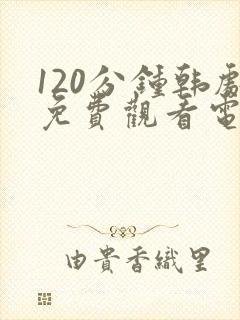 120分鍾韩處
免費觀看電
由貴香織里